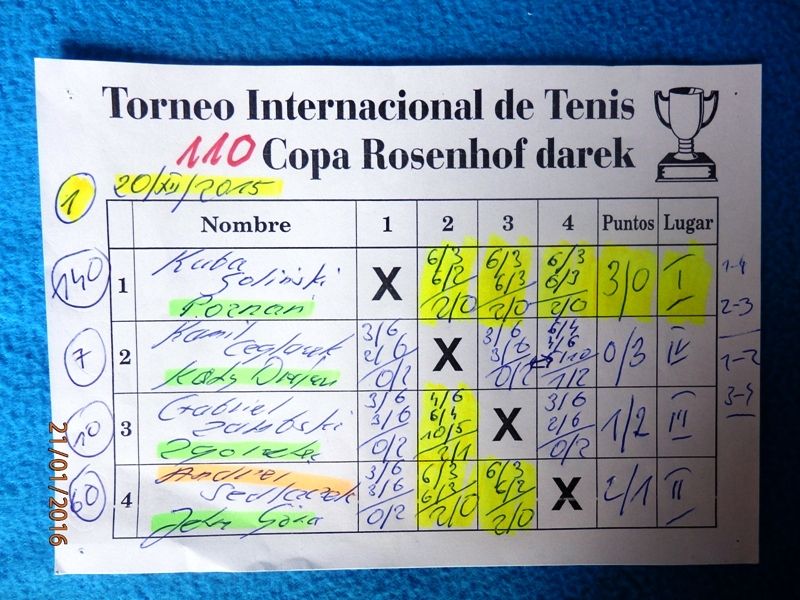 Torneo Internacional de Tenis
110 Copa Rosenhof darek
1 20/XII/2015
Nombre 1 2 3 4 Puntos Lugar
140 1 Kuba Soliński Poznań X 6/3 6/2 2/0 6/3 6/3 2/0 6/3 6/3 2/0 3/0 I
7 2 Kamil 3/6 2/6 0/2 X 3/6 3/6 0/2 6/4 4/6 7/10 1/2 0/3 IV
10 3 Gabriel 3/6 3/6 0/2 4/6 6/4 10/5 2/1 X 3/6 2/6 0/2 1/2 III
60 4 Andrzej Sedlaczek Jelenia Góra 3/6 3/6 0/2 6/3 6/3 2/0 6/3 6/2 2/0 X 2/1 II
1-4
2-3
1-2
3-4
21/01/2016